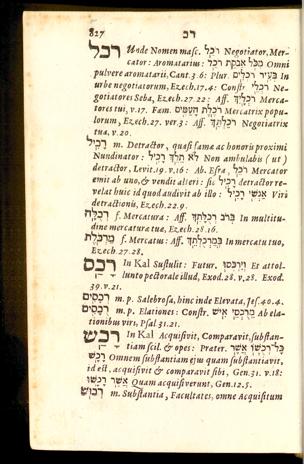 827 רכ
רכל Unde Nomen masc. רֹכֵל Negotiator, Mer-
cator: Aromatarius: מִכֹּל אַבְקַת רוֹכֵל Omni
pulvere aromatarii, Cant. 3.6: Plur. בְּעִיר רֹכְלִים In
urbe negotiatorum, Ezech. 17.4: Constr. רֹכְלֵי Ne-
gotiatores Seba, Ezech. 27.22: Aff. רֹכְלַיִךְ Merca-
tores tui, v. 17. Fœm. רֹכֶלֶת הָעַמִּים Mercatrix popu-
lorum, Ezech. 27. ver. 3: Aff. רֹכַלְתֵּךְ Negotiatrix
tua, v. 20.
רָכִיל m. Detractor, quasi famæ ac honoris proximi
Nundinator: לֹא תֵלֵךְ רָכִיל Non ambulabis (ut)
detractor, Levit. 19. v. 16: Ab Esra, רֹכֵל Mercator
emit ab uno, & vendit alteri: sic רָכִיל detractor re-
velat huic id quod audivit ab illo: אַנְשֵׁי רָכִיל Viri
detractionis, Ezech. 22.9.
רְכֻלָּה f. Mercatura: Aff. בְּרֹב רְכֻלָּתְךָ In multitu-
dine mercaturæ tuæ, Ezech. 28.16.
מַרְכֹּלֶת f. Mercatus: Aff. בְּמַרְכֻלְתֵּךְ In mercatu tuo,
Ezech. 27.28.
רכס In Kal Sustulit: Futur. וְיִרְכְּסוּ Et attol-
lunto pectorale illud, Exod. 28. v. 28. Exod.
39. v. 21.
רְכָסִים m. p. Salebrosa, hinc inde Elevata, Jes. 40.4.
רֻכְסִים m. p. Elationes: Constr. מֵרֻכְסֵי אִישׁ Ab ela-
tionibus viri, Psal. 31.21.
רכש In Kal Acquisivit, Comparavit, substan-
tiam scil. & opes: Præter. כָּל־רְכֻשׁוֹ אֲשֶׁר
רָכָשׁ Omnem substantiam ejus quam substantiavit,
id est, acquisivit & comparavit sibi, Gen. 31. v. 18:
אֲשֶׁר רָכָשׁוּ Quam acquisiverunt, Gen. 12.5.
רְכוּשׁ m. Substantia, Facultates, omne Acquisitum